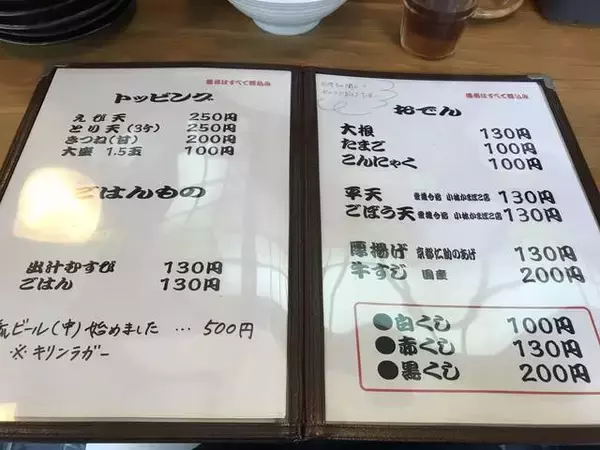 価格はすべて税込み
トッピング
えび天 250円
とり天(3ケ) 250円
きつね(甘) 200円
大盛 1.5玉 100円
ごはんもの
出汁むすび 130円
ごはん 130円
ビール(中)始めました … 500円
※キリンラガー
価格はすべて税込み
おでん
大根 130円
たまご 100円
こんにゃく 100円
平天 小林かまぼこ店 130円
ごぼう天 小林かまぼこ店 130円
厚揚げ 京都仁助のあげ 130円
牛すじ 国産 200円
●白くし 100円
●赤くし 130円
●黒くし 200円